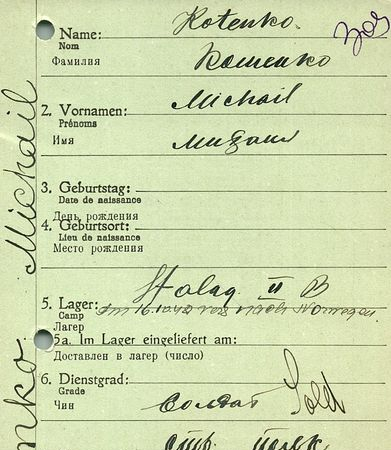 Kotenko
1. Name:
Nom
Фамилия
Котенко
Michail
2. Vornamen:
Prénoms
Имя
Михаил
3. Geburtstag:
Date de naissance
День рождения
4. Geburtsort:
Lieu de naissance
Место рождения
Stalag II B
5. Lager:
Camp
Лагерь
5a. Im Lager eingeliefert am:
Доставлен в лагер (число)
6. Dienstgrad:
Grade
Чин
солдат Sold
стр. полк
Michail
nko